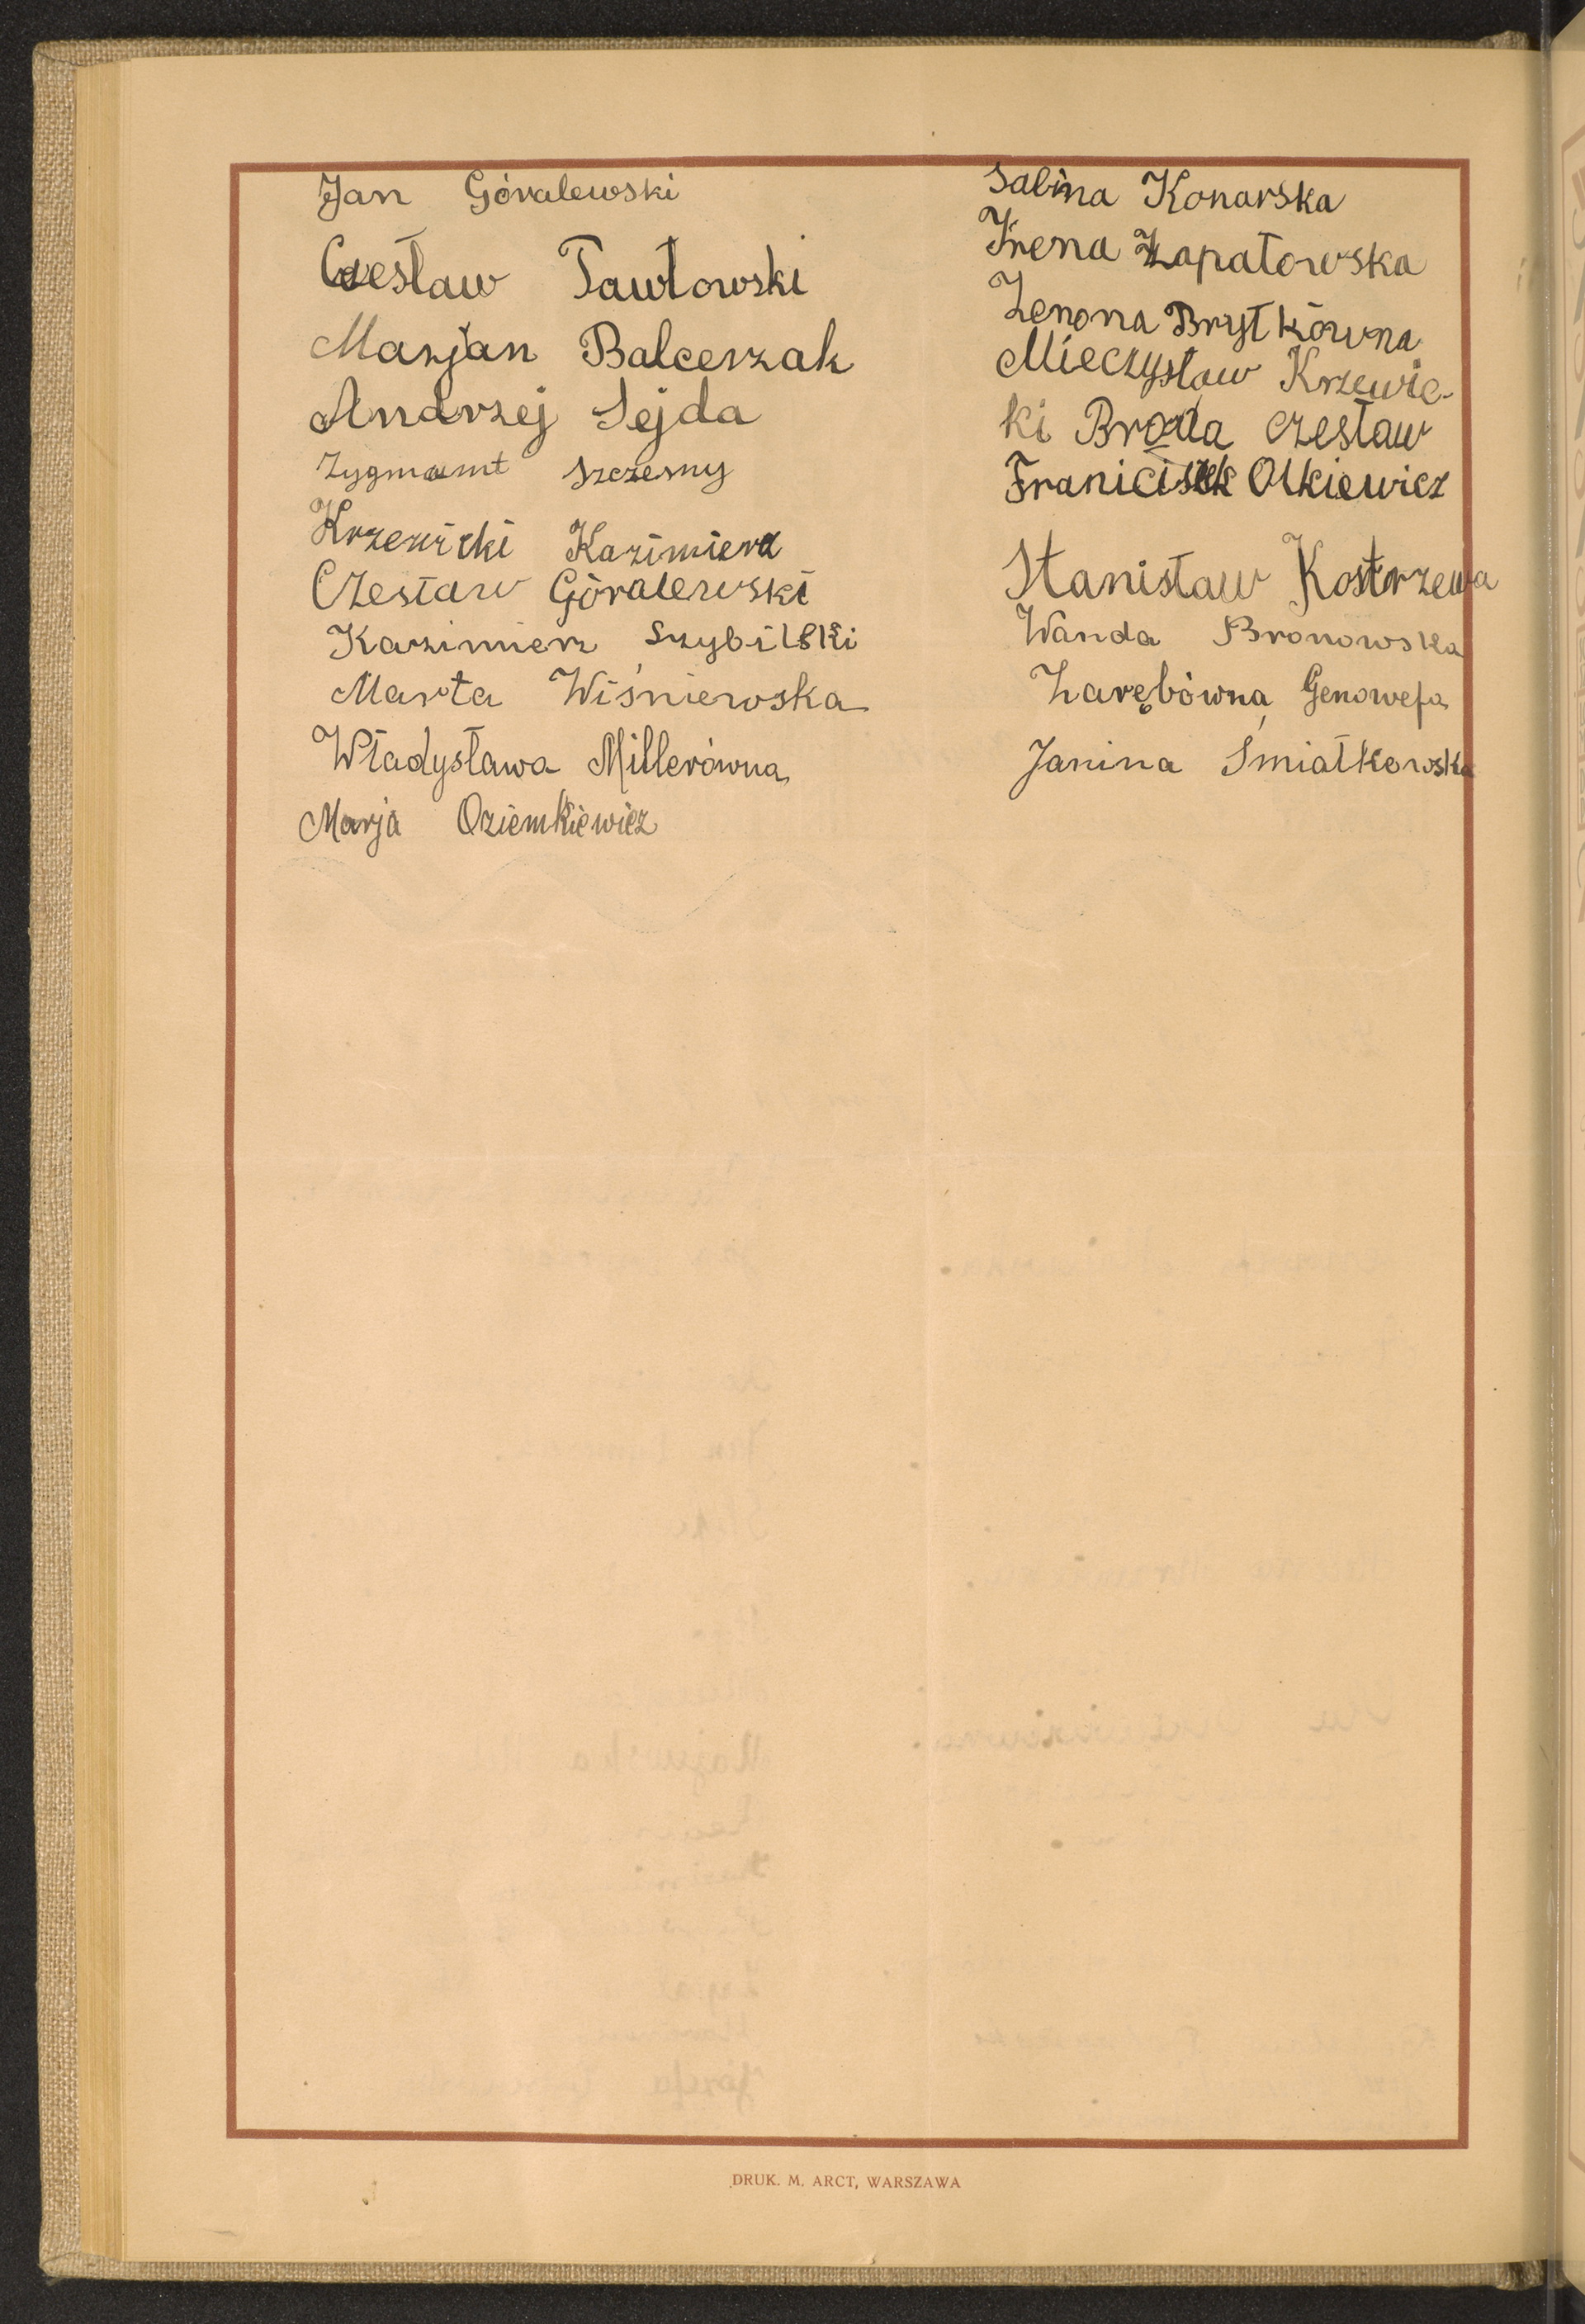 Jan Góralewski
Czesław Pawłowski
Marjan Balcerzak
Andrzej Sejda
Zygmamt Szczesny
Krzewicki Kazimierz
Czesław Góralewski
Kazimierz Szybilski
Marta Wiśniewska
Władysława Millerówna
Marja Oziemkiewicz
Sabina Konarska
Irena Zapałowska
Zenona Brytkówna
Mieczysław Krzewic-
ki Broda Czesław
Franiciszek Olkiewicz
Stanisław Kostrzewa
Wanda Bronowska
Zarębówna Genowefa
Janina Śmiałkowska
DRUK. M. ARCT, WARSZAWA